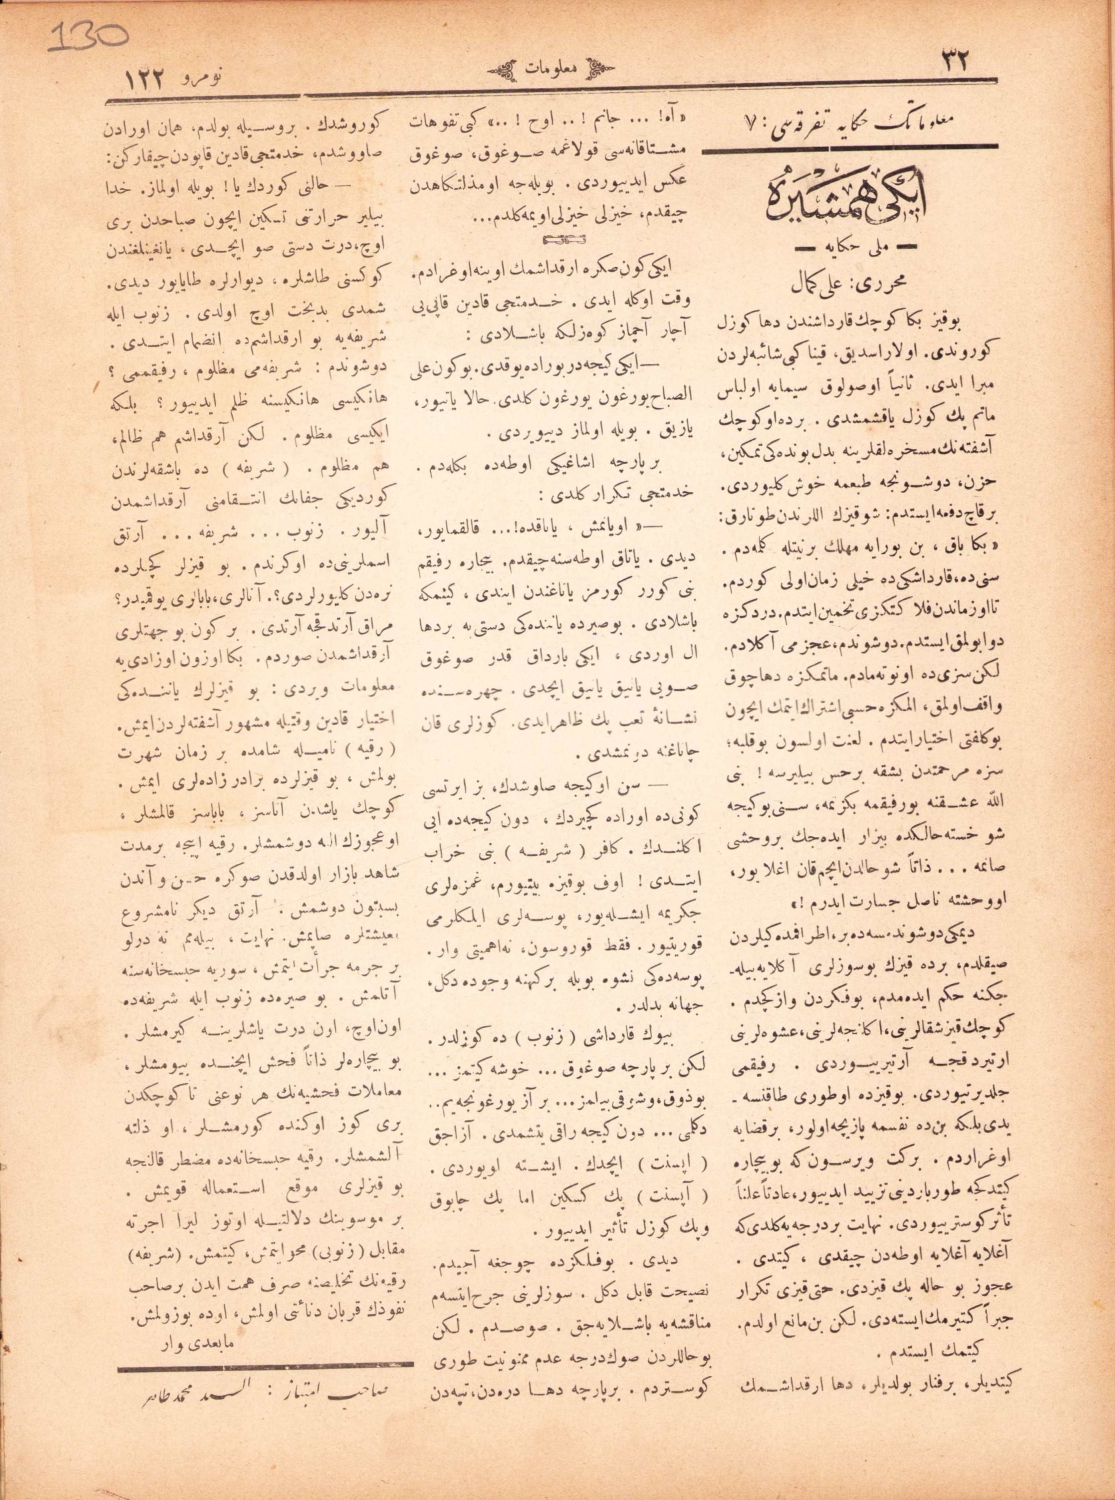 130
٣٢
معلومات
نومرو ١٢٢
معلوماتك حكايه تفرقه‌سی : ٧
ایكی همشیره
— ملی حكايه —
محرری : علی كمال
بوقیز بكا كوچك قارداشندن دها كوزل
كوروندی. اولا راسدیق، قینا كبی شائبه‌لردن
مبرا ایدی. ثانیاً اوصولوق سیمایه اولباس
ماتم پك كوزل یاقشمشدی . برده اوكوچك
آشفته‌نك مسخره‌لقلرینه بدل بونده‌كی تمكین،
حزن، دوشونجه طبعمه خوش كلیوردی.
برقاچ دفعه ایستدم: شوقیزك اللرندن طوتارق:
« بكا باق ، بن بورایه مهلك برنیتله كلمه‌دم .
سنی‌ده، قارداشكی‌ده خیلی زمان اولی كوردم.
تا اوزماندن فلاكتكزی تخمین ایتدم. دردكزه
دوا بولمق ایستدم. دوشوندم، عجزمی آكلادم.
لكن سزی‌ده اونوته‌مادم. ماتمكزه دها چوق
واقف اولمق، المكزه حسبی اشتراك ایتمك ایچون
بوكلفتی اختیار ایتدم . لعنت اولسون بوقلبه؛
سزه مرحمتدن بشقه برحس بیلیرسه ! بنی
الله عشقنه بورفیقمه بكزتمه، سنی بوكیجه
شو خسته حالكده بیزار ایده‌جك بروحشی
صانمه . . . ذاتاً شو حالدن ایچم قان اغلایور،
او وحشته ناصل جسارت ایدرم !»
دیمكی دوشوندمسه‌ده بر، اطرافمده كیلردن
صیقلدم، برده قیزك بوسوزلری آكلایه‌بیله‌ـ
جكنه حكم ایده‌مدم، بوفكردن وازكچدم .
كوچك قیز شقالرینی، اكلنجه‌لرینی، عشوه‌لرینی
ارتیردقجه آرتیرییوردی . رفیقمی
چلدیرتیوردی. بوقیزده اوطوری طاقنسه ـ
یدی بلكه بن‌ده نفسمه بازیچه اولور، برقضایه
اوغراردم . بركت ویرسون كه بوبیچاره
كیتدكجه طور باردینی تزیید ایدییور، عادتاً علناً
تأثر كوستریییوردی. نهایت بردرجه‌یه كلدی كه
آغلایه آغلایه اوطه‌دن چیقدی ، كیتدی .
عجوز بو حاله پك قیزدی. حتی قیزی تكرار
جبراً كتیرمك ایسته‌دی. لكن بن مانع اولدم.
كیتمك ایستدم .
كیتدیلر، برفنار بولدیلر، دها ارقداشمك
« آه! ... جانم ! .. اوح ! ..» كبی تفوهات
مشتاقانه‌سی قولاغمه صوغوق، صوغوق
عكس ایدییوردی . بویله‌جه اومذلتكاهدن
چیقدم، خیزلی خیزلی اویمه كلدم...
ایكی كون صكره ارقداشمك اوینه اوغرادم.
وقت اوكله ایدی . خدمتجی قادین قاپی‌یی
آچار آچماز كوه‌زلكه باشلادی :
— ایكی كیجه‌در بوراده یوقدی. بوكون علی
الصباح یورغون یورغون كلدی. حالا یاتیور،
یازیق . بویله اولماز دییوردی .
بر پارچه اشاغیكی اوطه‌ده بكله‌دم .
خدمتجی تكرار كلدی :
— « اویانمش ، یاتاقده!... قالقمایور،
دیدی . یاتاق اوطه‌سنه چیقدم. بیچاره رفیقم
بنی كورر كورمز یاتاغندن ایندی ، كیتمكه
باشلادی . بوصیرده یاننده‌كی دستی‌یه بردها
ال اوردی ، ایكی بارداق قدر صوغوق
صویی یانیق یانیق ایچدی . چهره‌سنده
نشانهٔ تعب پك ظاهر ایدی. كوزلری قان
چاناغنه دونمشدی .
— سن اوكیجه صاوشدك، بز ایرتسی
كونی‌ده اوراده كچیردك ، دون كیجه‌ده ایی
اكلندك . كافر ( شریفه ) بنی خراب
ایتدی ! اوف بوقیزه بیتیورم، غمزه‌لری
جكریمه ایشله‌یور، پوسه‌لری ایلیكلرمی
قوریتیور. فقط قوروسون، نه‌اهمیتی وار.
پوسه‌ده‌كی نشوه بویله بركهنه وجوده دكل،
جهانه بدلدر .
بیوك قارداشی ( زنوب ) ده كوزلدر .
لكن بر پارچه صوغوق ... خوشه كیتمز ...
بوذوق، وشرقی بیلمز... بر آز یورغونجه‌یم..
دكلمی ... دون كیجه راقی یتشمدی . آزاجق
( اپسنت ) ایچدك . ایشته اویوردی .
( آپسنت ) پك كسكین اما پك چابوق
وپك كوزل تأثیر ایدییور .
دیدی . بوفلكزده چوجغه آجیدم.
نصیحت قابل دكل . سوزلرینی جرح ایتسه‌م
مناقشه‌یه باشلایه‌جق . صوصدم . لكن
بوحاللردن صوك درجه عدم ممنونیت طوری
كوستردم . برپارچه دها دره‌دن، تپه‌دن
كوروشدك . بروسیله بولدم، همان اورادن
صاووشدم، خدمتجی قادین قاپودن چیقاركن:
— حالنی كوردك یا! بویله اولماز. خدا
بیلیر حرارتنی تسكین ایچون صباحدن بری
اوچ، درت دستی صو ایچدی ، یانغینلغندن
كوكسنی طاشلره ، دیوارلره طایایور دیدی.
شمدی بدبخت اوچ اولدی . زنوب ایله
شریفه‌یه بو ارقداشم‌ده انضمام ایتدی .
دوشوندم : شریفه‌می مظلوم ، رفیقممی ؟
هانكیسی هانكیسنه ظلم ایدییور ؟ بلكه
ایكیسی مظلوم . لكن آرقداشم هم ظالم،
هم مظلوم . ( شریفه ) ده باشقه‌لرندن
كوردیكی جفانك انتقامنی آرقداشمدن
آلیور . زنوب ... شریفه ... آرتق
اسملرینی‌ده اوكرندم . بو قیزلر كیجه‌لرده
نره‌دن كلیورلردی؟. آنالری، بابالری یوقمیدر؟
مراق آرتدقجه آرتدی . بر كون بو جهتلری
آرقداشمدن صوردم . بكا اوزون اوزادی‌یه
معلومات ویردی : بو قیزلرك یاننده‌كی
اختیار قادین وقتیله مشهور آشفته‌لردن ایمش.
( رقیه ) نامیله شامده بر زمان شهرت
بولمش ، بو قیزلرده برادرزاده‌لری ایمش .
كوچك یاشدن آناسز ، باباسز قالمشلر ،
او عجوزك الـه دوشمشلر. رقیه ایپیجه برمدت
شاهد بازار اولدقدن صوكره حسن و آندن
بسبتون دوشمش . آرتق دیكر نامشروع
معیشتلره صاپمش. نهایت ، بیله‌مم نه درلو
بر جرمه جرأت ایتمش ، سوریه حبسخانه‌سنه
آتلمش . بو صیره‌ده زنوب ایله شریفه‌ده
اون اوچ، اون درت یاشلرینه كیرمشلر .
بو بیچاره‌لر ذاتاً فحش ایچنده بیومشلر ،
معاملات فحشیه‌نك هر نوعنی تا كوچكدن
بری كوز اوكنده كورمشلر ، او ذلته
آلشمشلر. رقیه حبسخانه‌ده مضطر قالنجه
بو قیزلری موقع استعماله قویمش .
بر موسوینك دلالتیله اوتوز لیرا اجرته
مقابل (زنوبی) محو ایتمش، كیتمش. (شریفه)
رقیه‌نك تخلیصنه صرف همت ایدن برصاحب
نفوذك قربان دنائتی اولمش، اوده بوزولمش.
مابعدی وار
صاحب امتیاز : السید محمد طاهر